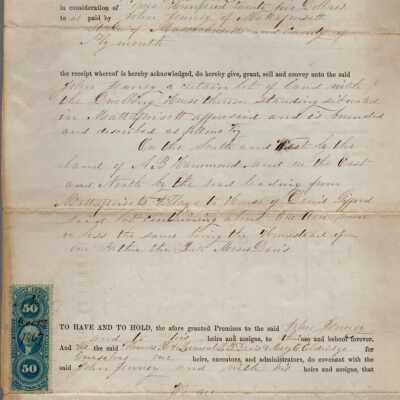 in consideration of Two Hundred Twenty five Dollars
to us paid by John Jenney of Mattapoisett
State of Massachusetts and County of
Plymouth
the receipt whereof is hereby acknowledged, do hereby give, grant, sell and convey unto the said
John Jenney a certain lot of land with
the Dwelling House thereon Standing situated
in Mattapoisett aforesaid and is bounded
and described as follows
On the South and West by the
land of A B Hammond and on the East
and North by the road leading from
Mattapoisett Village to House of
lot containing about One
or less the same being the Homestead of
our Father the late Moses Davis
50 50
TO HAVE AND TO HOLD, the afore granted Premises to the said John Jenney
and to his heirs and assigns, to his use and behoof forever.
And We the said for
Ourselves our heirs, executors, and administrators, do covenant with the
said John Jenney and with his heirs and assigns, that
We are